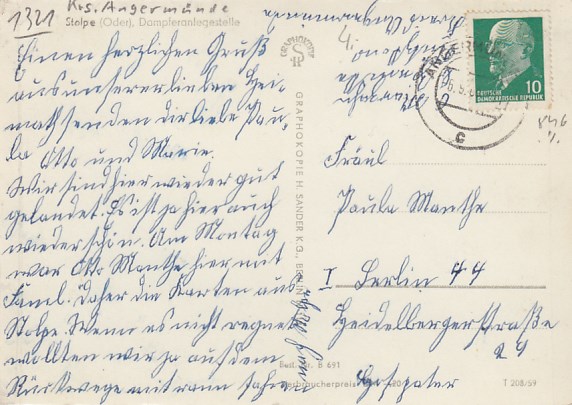 1321 Krs. Angermünde
Stolpe (Oder), Dampferanlegestelle
Einen herzlichen Gruß
aus unserer lieben Hei-
mat senden dir liebe Pau-
la Otto und Marie.
Wir sind hier wieder gut
gelandet. Es ist ja hier auch
wieder schön. Am Montag
war Otto Manthe hier mit
Faml. daher die Karten aus
Stolpe. Wenn es nicht regnet
wollten wir ja auf dem
Rückwege mit ran fahren
GRAPHOKOPIE
GRAPHOKOPIE H. SANDER K.G., BERLIN
Best.-Nr. B 691
Verbraucherpreis
T 208/59
ANGERMÜN
C
10
DEUTSCHE
DEMOKRATISCHE REPUBLIK
Fräul
Paula Manthe
1 Berlin 44
Heidelbergerstraße
24
Hof parter